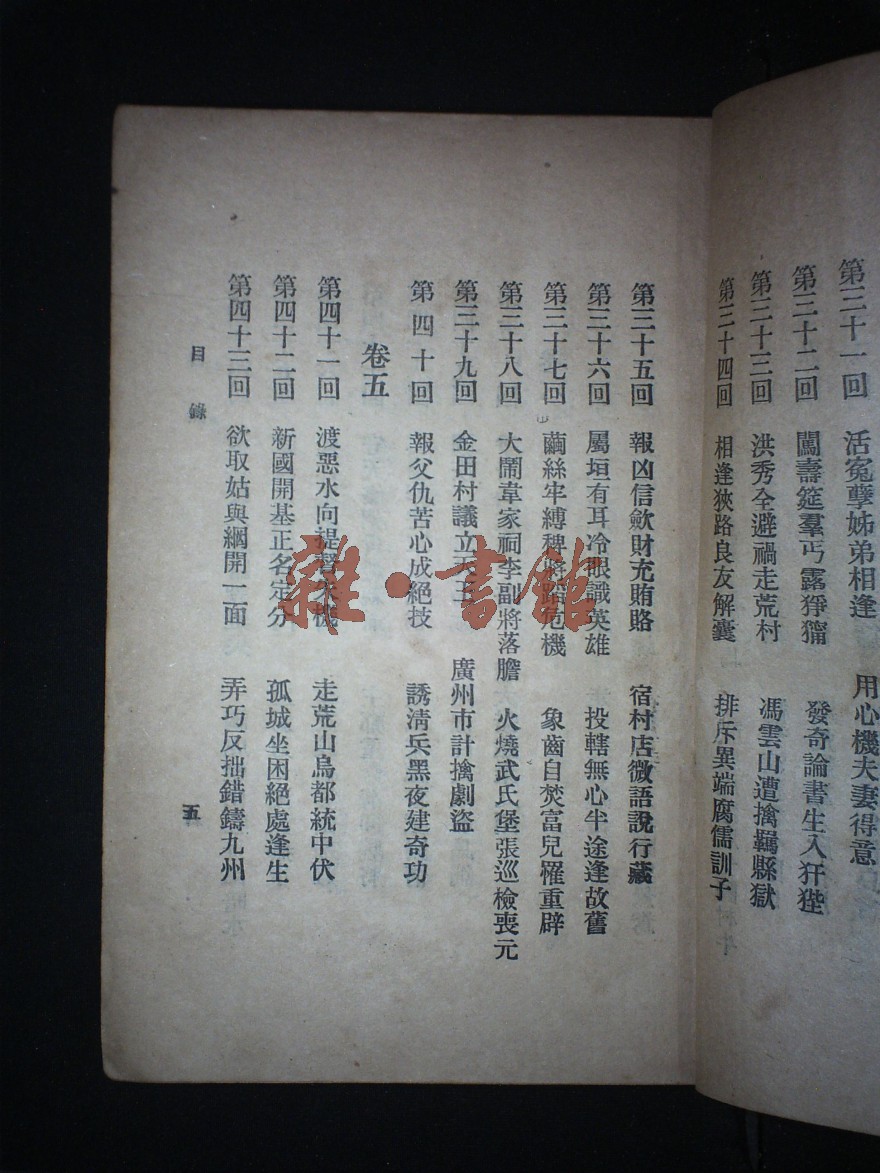 第三十一回 活冤孽姊弟相逢 用心機夫妻得意
第三十二回 闖壽筵羣丐露猙獰 發奇論書生入犴狴
第三十三回 洪秀全避禍走荒村 馮雲山遭擒羈縣獄
第三十四回 相逢狹路良友解囊 排斥異端腐儒訓子
第三十五回 報凶信歛財充賄賂 宿村店微語說行藏
第三十六回 屬垣有耳冷眼識英雄 投轄無心半途逢故舊
第三十七回 繭絲牢縛稗將 危機 象齒自焚富兒罹重辟
第三十八回 大鬧韋家祠李副將落膽 火燒武氏堡張巡檢喪元
第三十九回 金田村議立天王 廣州市計擒劇盜
第四十回 報父仇苦心成絕技 誘清兵黑夜建奇功
卷五
第四十一回 渡惡水向提督 機 走荒山烏都統中伏
第四十二回 新國開基正名定分 孤城坐困絕處逢生
第四十三回 欲取姑與網開一面 弄巧反拙錯鑄九州
目錄
五
雜·書館